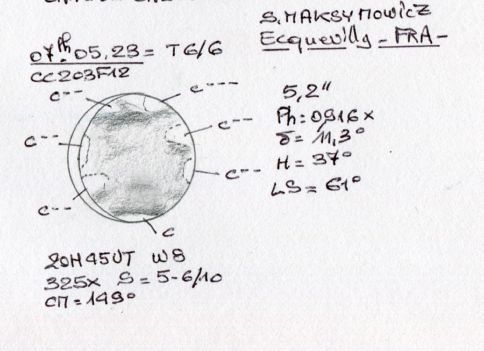 S. MAKSYMOWICZ
Ecquevilly - FRA -
07th 05, 23 = T6/6
CC203F12
C--
C---
C--
C--
C--
C--
C
5,2"
Ph: 0,916x
δ = 11,3°
H = 37°
LS = 61°
20H45UT W8
325x S = 5-6/10
CM = 149°